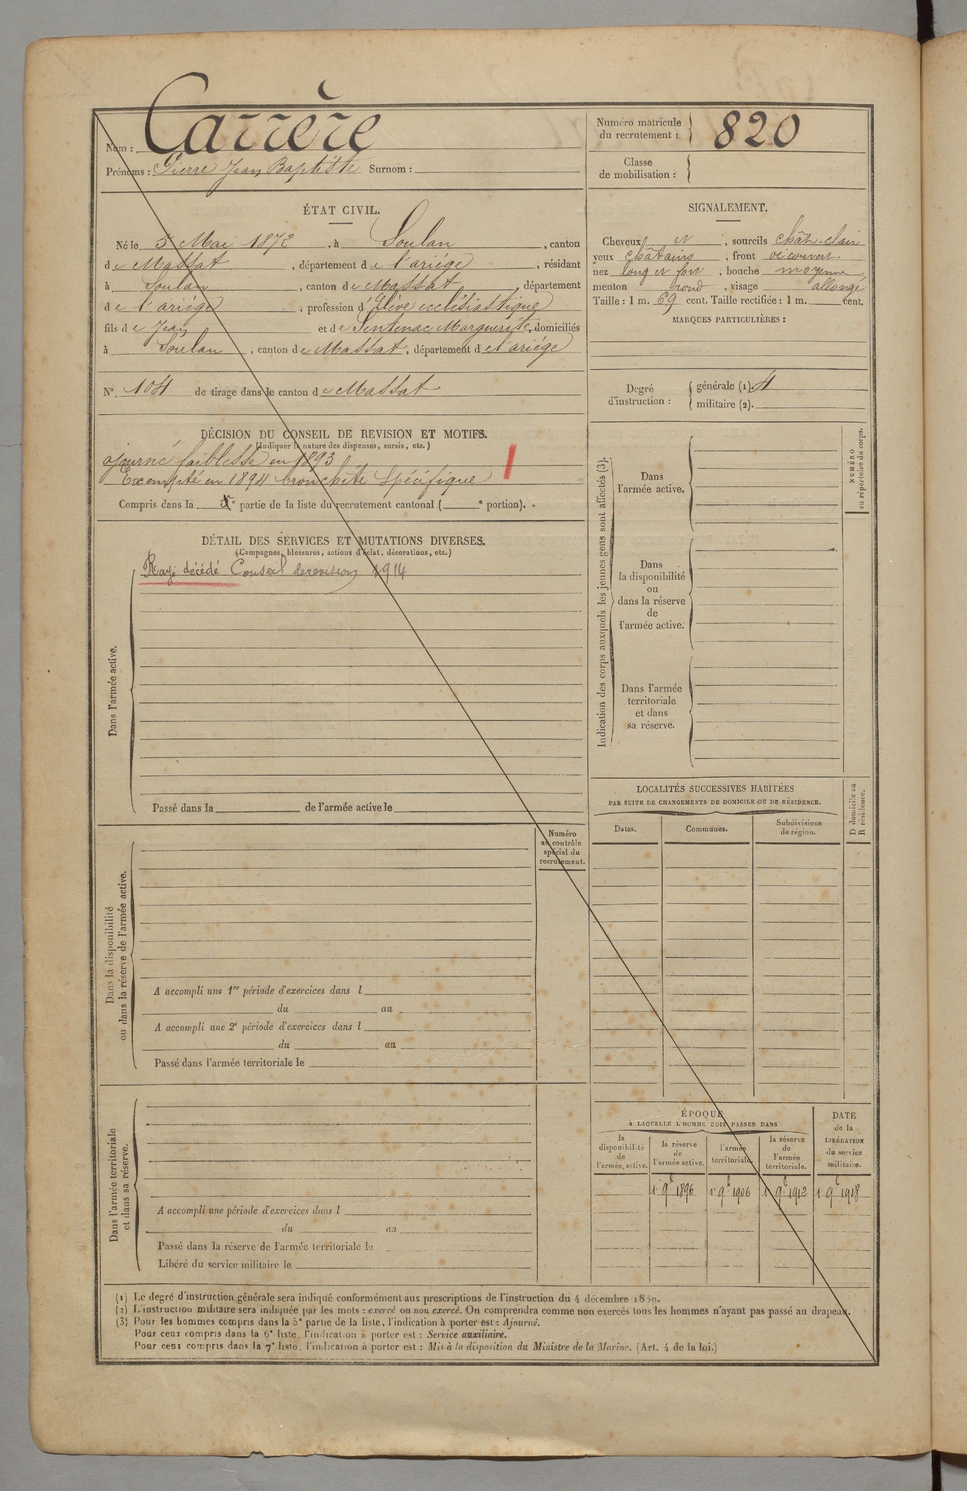 Nom : Carrère
Prénoms : Pierre Jean Baptiste Surnom :
Numéro matricule du recrutement : 820
Classe de mobilisation :
ÉTAT CIVIL.
Né le 5 Mai 1872, à Soulan, canton
de Massat, département de l'ariége, résidant
à Soulan, canton de Massat, département
de l'ariége, profession d'Élève ecclésiastique
fils de Jean et de Sentenac Marguerite, domiciliés
à Soulan, canton de Massat, département de l'ariége
N° 104 de tirage dans le canton de Massat
SIGNALEMENT.
Cheveux et, sourcils chât-clair
yeux châtains, front découvert
nez long et fort, bouche moyenne
menton rond, visage allongé
Taille : 1 m. 69 cent. Taille rectifiée : 1 m. cent.
MARQUES PARTICULIÈRES :
Degré d'instruction :
générale (1). 4
militaire (2).
DÉCISION DU CONSEIL DE REVISION ET MOTIFS.
(Indiquer la nature des dispenses, sursis, etc.)
ajourné faiblesse en 1893
Exempté en 1894 bronchite spécifique
Compris dans la e partie de la liste du recrutement cantonal ( e portion).
DÉTAIL DES SERVICES ET MUTATIONS DIVERSES.
(Campagnes, blessures, actions d'éclat, décorations, etc.)
Rayé décédé Conseil de revision 1914
Dans l'armée active.
Passé dans la de l'armée active le
Indication des corps auxquels les jeunes gens sont affectés (3).
Dans
l'armée active.
Dans
la disponibilité
ou
dans la réserve
de
l'armée active.
Dans l'armée
territoriale
et dans
sa réserve.
NUMÉRO
au répertoire du corps.
LOCALITÉS SUCCESSIVES HABITÉES
PAR SUITE DE CHANGEMENTS DE DOMICILE OU DE RÉSIDENCE.
Dates.
Communes.
Subdivisions de région.
D domicile ou
R résidence.
Dans la disponibilité
ou dans la réserve de l'armée active.
Numéro
au contrôle
spécial du
recrutement.
A accompli une 1re période d'exercices dans l
du au
A accompli une 2e période d'exercices dans l
du au
Passé dans l'armée territoriale le
Dans l'armée territoriale
et dans sa réserve.
A accompli une période d'exercices dans l
du au
Passé dans la réserve de l'armée territoriale le
Libéré du service militaire le
ÉPOQUE
À LAQUELLE L'HOMME DOIT PASSER DANS
la disponibilité de l'armée active.
la réserve de l'armée active.
l'armée territoriale.
la réserve de l'armée territoriale.
DATE de la LIBÉRATION du service militaire.
1r 9e 1896 1r 9e 1906 1r 9e 1912 1r 9e 1918
(1) Le degré d'instruction générale sera indiqué conformément aux prescriptions de l'instruction du 4 décembre 1889.
(2) L'instruction militaire sera indiquée par les mots : exercé ou non exercé. On comprendra comme non exercés tous les hommes n'ayant pas passé au drapeau.
(3) Pour les hommes compris dans la 5e partie de la liste, l'indication à porter est : Ajourné.
Pour ceux compris dans la 6e liste, l'indication à porter est : Service auxiliaire.
Pour ceux compris dans la 7e liste, l'indication à porter est : Mis à la disposition du Ministre de la Marine. (Art. 4 de la loi.)